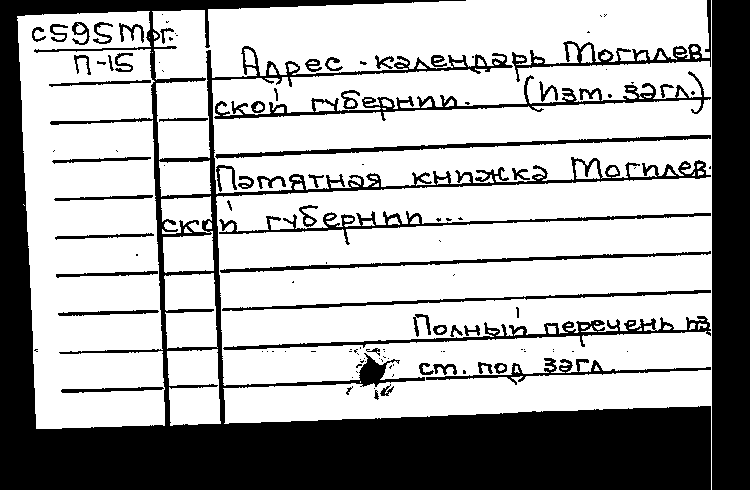 с595Мог.
П-15
Адрес-календарь Могилев-
ской губернии. (Изм. загл.)
Памятная книжка Могилев-
ской губернии...
Полный перечень из
ст. под загл.